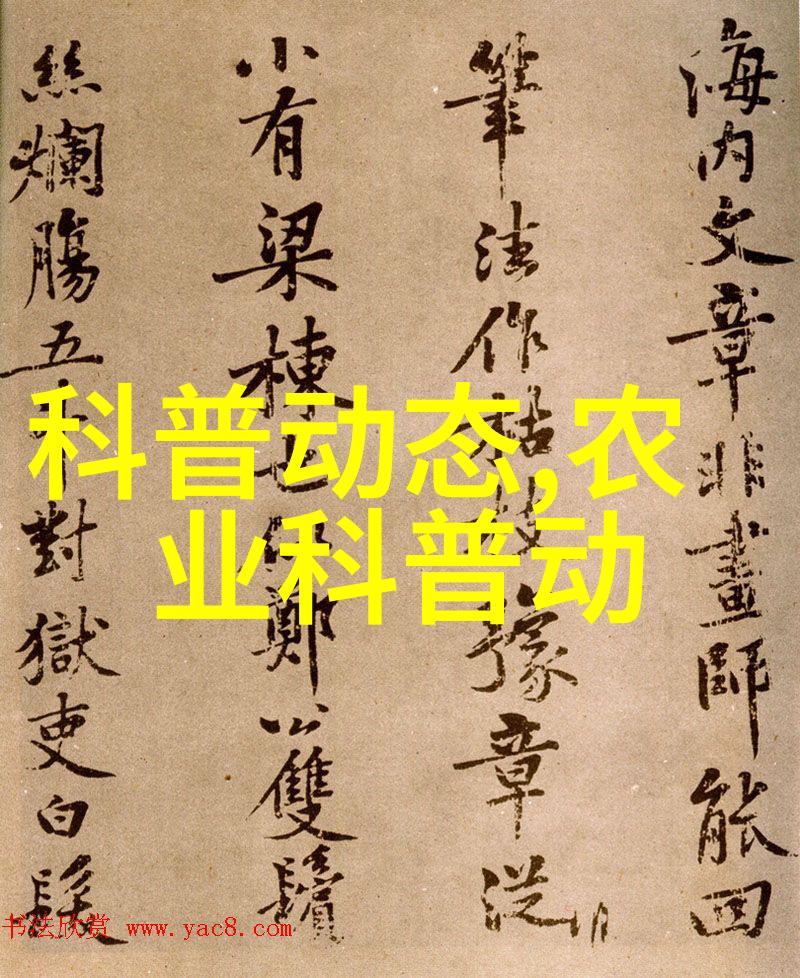 海内文章非畫師能回
筆法作枯枝豫章從
小有梁棟也似鄭公雙鬢
絲爛腸五斗對獄吏白髮
科普动态,农
业科普动
书法欣赏 www.yac8.com